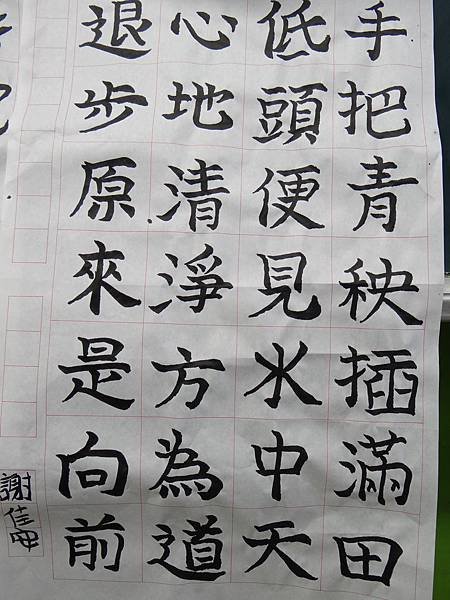 手把青秧插滿田
低頭便見水中天
心地清淨方為道
退步原來是向前
謝佳